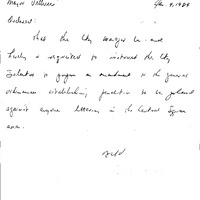 Ordered:
That the City Manager be and
hereby is requested to instruct the City
Solicitor to prepare an amendment to the general
ordinances establishing penalties to be placed
against anyone littering in the Central Square
area.